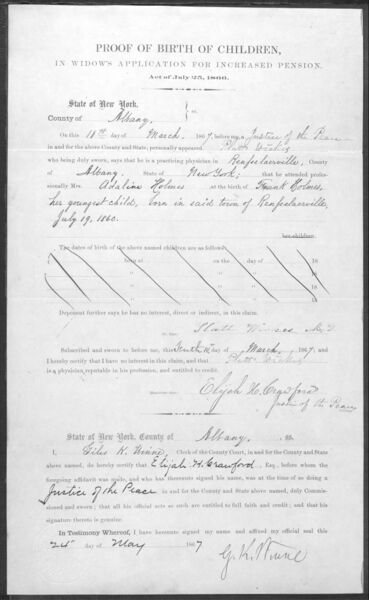 PROOF OF BIRTH OF CHILDREN,
IN WIDOW'S APPLICATION FOR INCREASED PENSION.
Act of July 25, 1866.
State of New York,
County of Albany, } ss.
On this 10th day of March, 1867, before me, a Justice of the Peace
in and for the above County and State, personally appeared Platt
who being duly sworn, says that he is a practicing physician in Rensselaerville, County
of Albany, State of New York; that he attended profes-
sionally Mrs. Adaline Holmes at the birth of Frank Holmes,
her youngest child, born in said town of Rensselaerville,
July 19, 1860.
her children.
The dates of birth of the above named children are as follows:
born at on the day of 18
" " 18
" " 18
" " 18
Deponent further says he has no interest, direct or indirect, in this claim.
Platt M.D
Subscribed and sworn to before me, this Tenth 10th day of March, 1867; and
I hereby certify that I have no interest in this claim, and that Platt
is a physician reputable in his profession, and entitled to credit.
Elijah H. Crawford
Justice of the Peace
State of New York, County of Albany, ss.
I, Giles K. Winne, Clerk of the County Court, in and for the County and State
above named, do hereby certify that Elijah H. Crawford Esq., before whom the
foregoing affidavit was made, and who has thereunto signed his name, was at the time of so doing a
Justice of the Peace in and for the County and State above named, duly Commis-
sioned and sworn; that all his official acts as such are entitled to full faith and credit; and that his
signature thereto is genuine.
In Testimony Whereof, I have hereunto signed my name and affixed my official seal this
24" day of May 1867
G. K. Winne